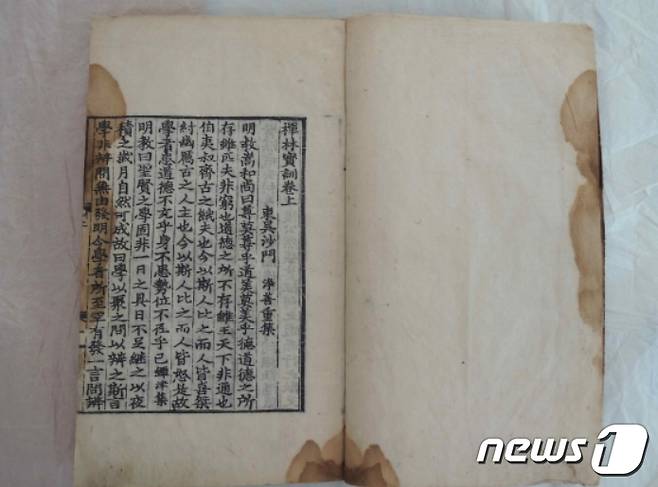 禪林寶訓卷上
東吳沙門 淨善重集
明教嵩和尚曰尊莫尊乎道美莫美乎德道德之所
存雖匹夫非窮也道德之所不存雖王天下非通也
伯夷叔齊古之餓夫也今以斯人比之而人皆喜桀
紂幽厲古之人主也今以斯人比之而人皆怒是故
學者患道德不充乎身不患勢位不在乎己鐔津集
明教曰聖賢之學固非一日之具日不足繼之以夜
積之歲月自然可成故曰學以聚之問以辨之斯言
學非辨問無由發明今學者所至罕有發一言問辨
news1